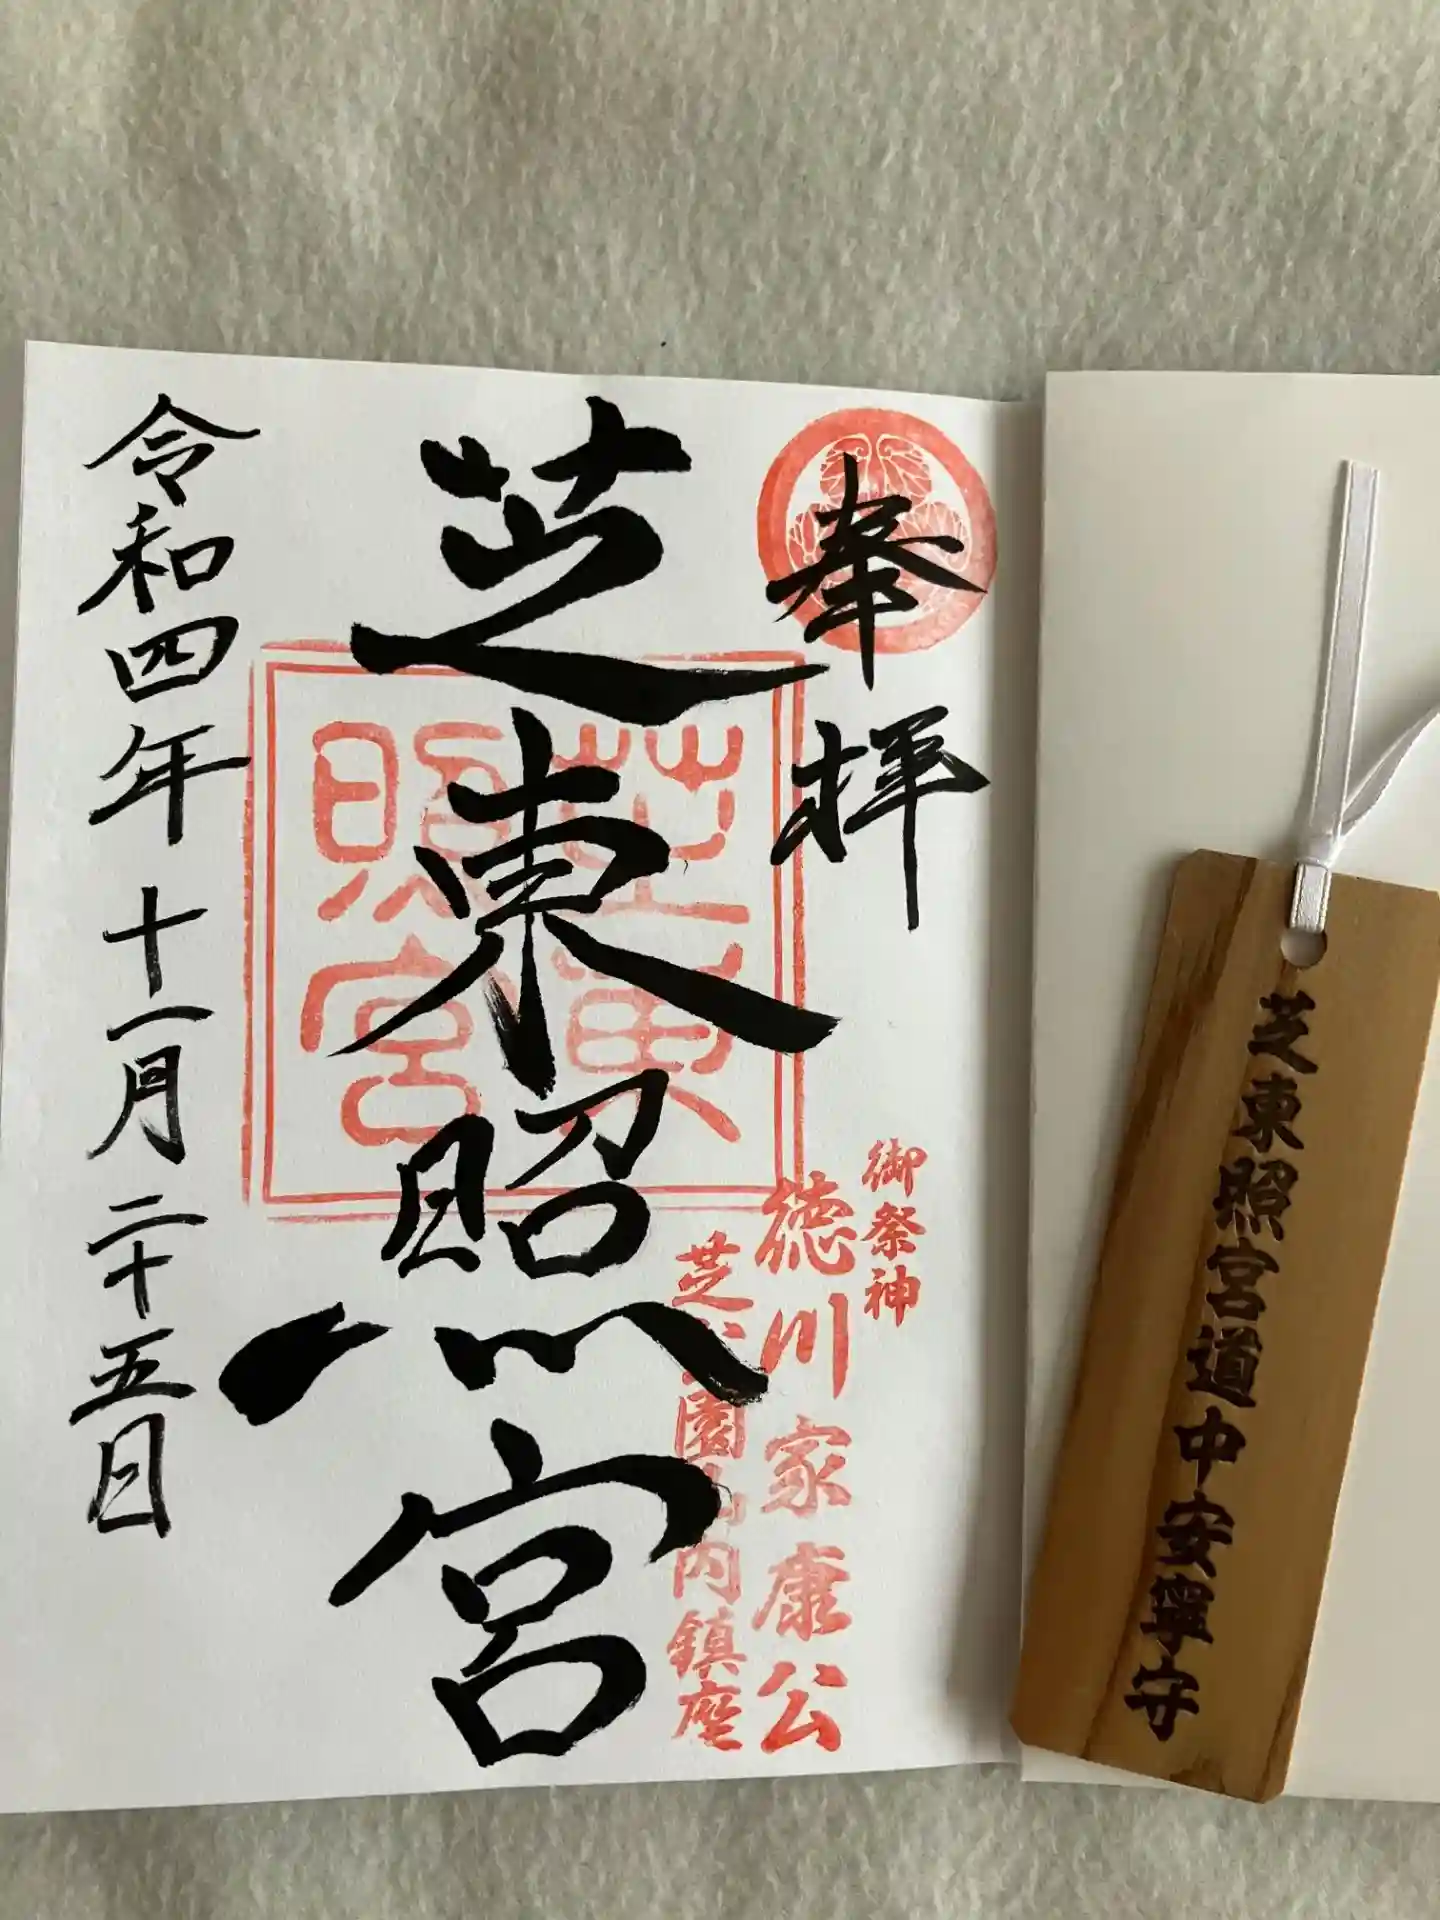 奉拝
御祭神
徳川家康公
芝公園丸山内鎮座
芝東照宮
芝東
照宮
令和四年十一月二十五日
芝東照宮道中安寧守